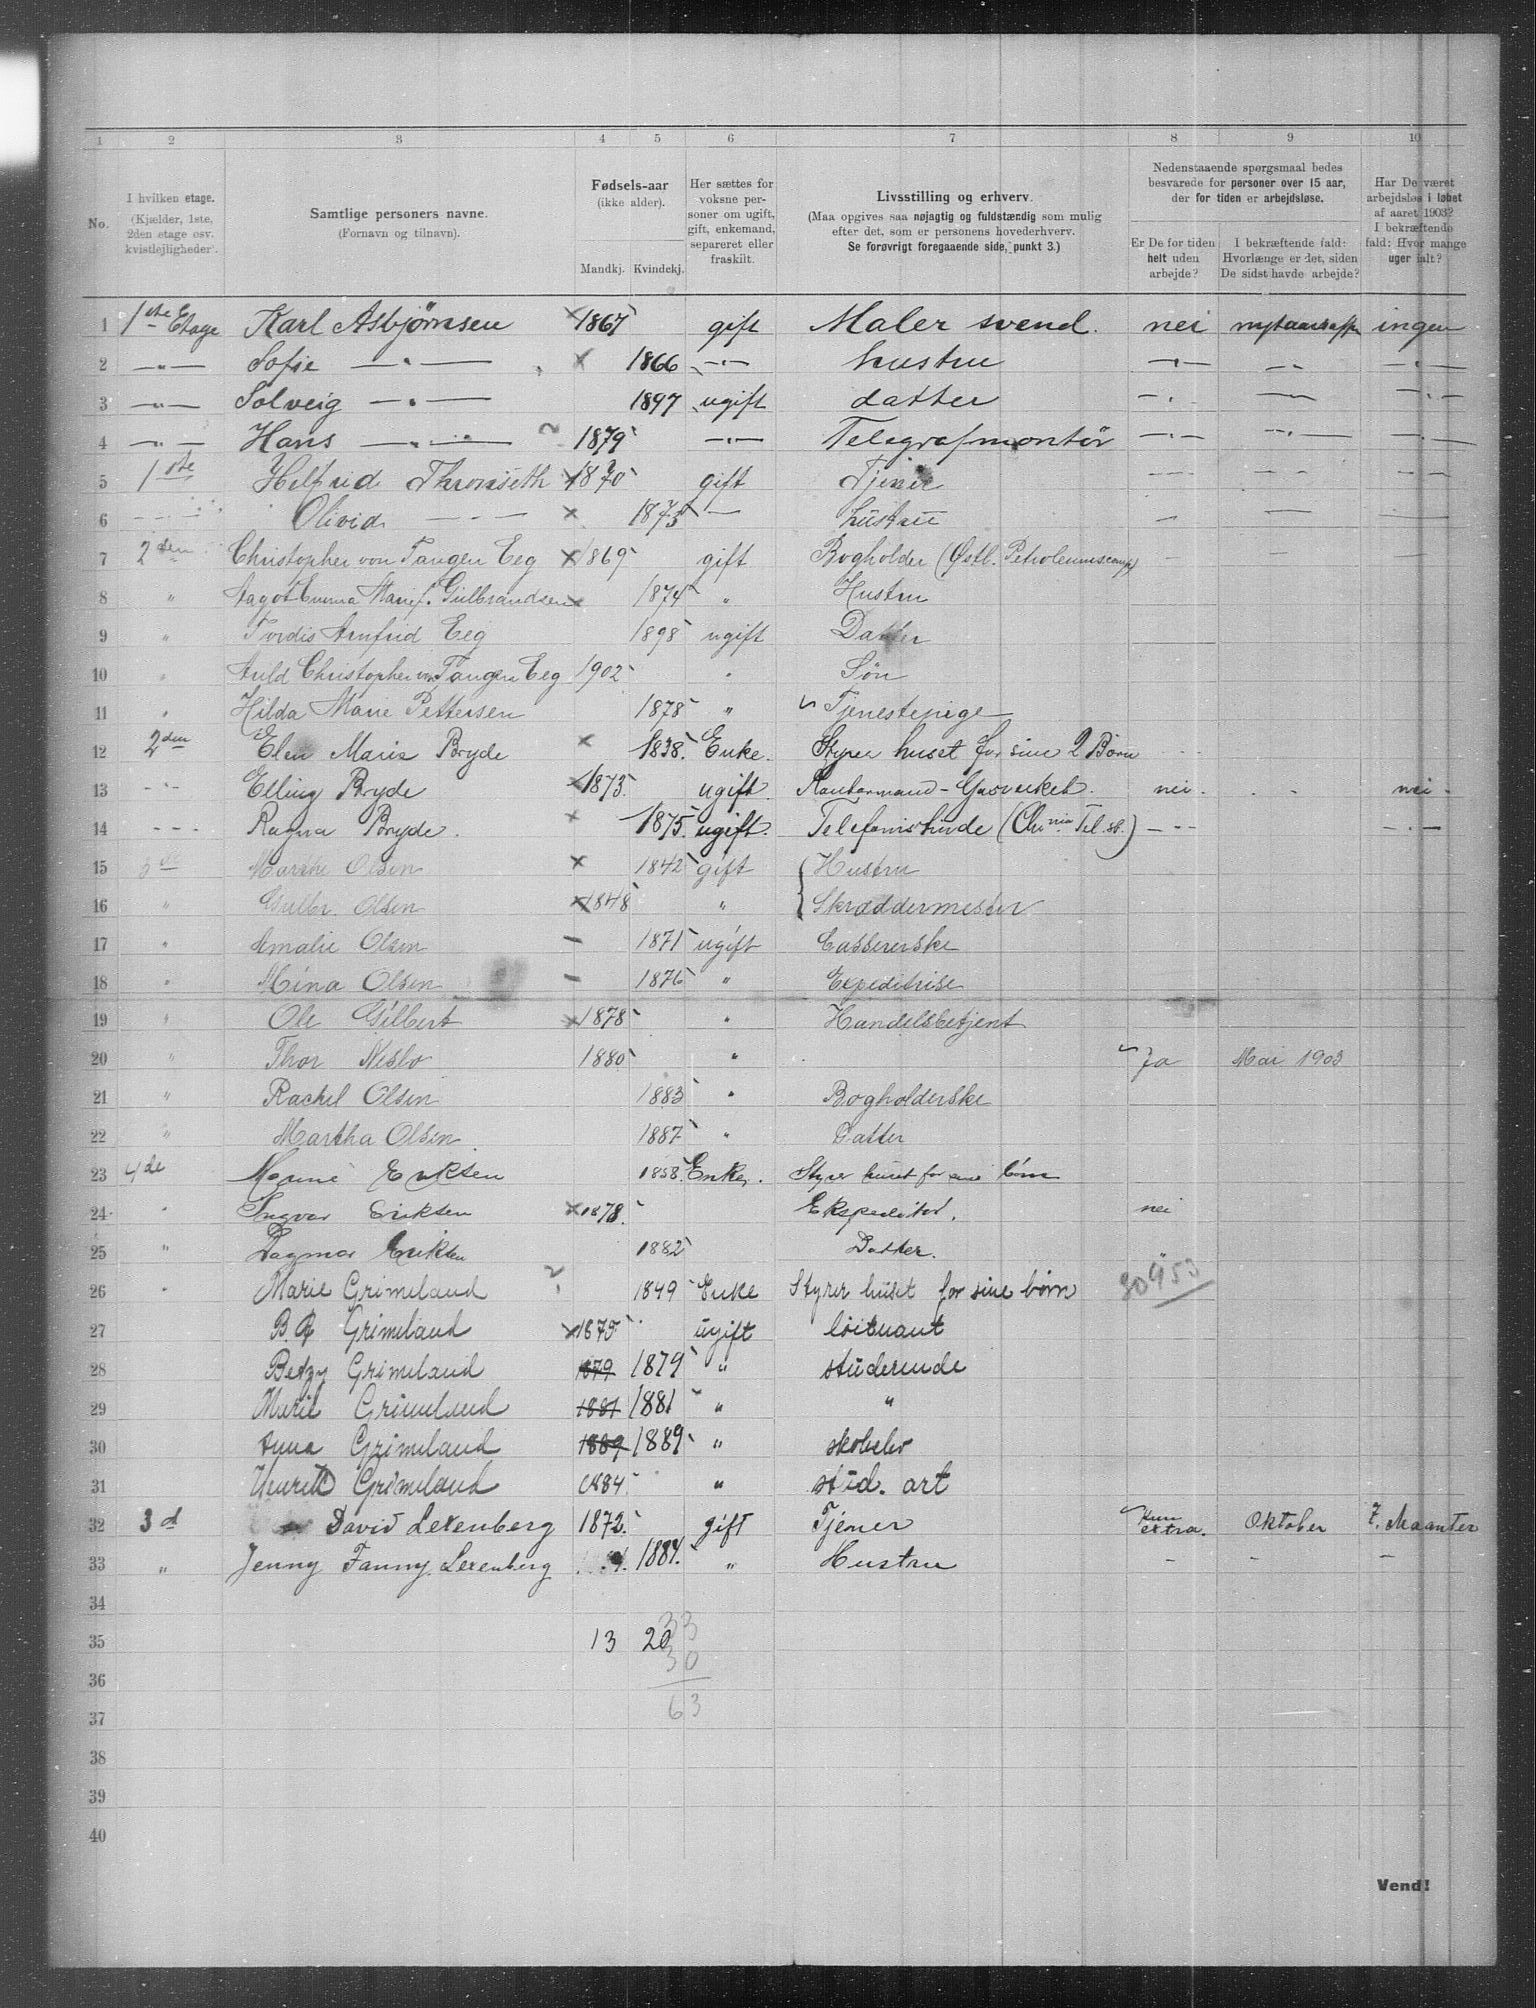 1 2 3 4 5 6 7 8 9 10
No.
I hvilken etage.
(Kjælder, 1ste,
2den etage osv.
kvistlejligheder).
Samtlige personers navne.
(Fornavn og tilnavn).
Fødsels-aar
(ikke alder).
Mandkj. Kvindekj.
Her sættes for
voksne per-
soner om ugift,
gift, enkemand,
separeret eller
fraskilt.
Livsstilling og erhverv.
(Maa opgives saa nøjagtig og fuldstændig som mulig
efter det, som er personens hovederhverv.
Se forøvrigt foregaaende side, punkt 3.)
Nedenstaaende spørgsmaal bedes
besvarede for personer over 15 aar,
der for tiden er arbejdsløse.
Er De for tiden
helt uden
arbejde?
I bekræftende fald:
Hvorlænge er det, siden
De sidst havde arbejde?
Har De været
arbejdsløs i løbet
af aaret 1903?
I bekræftende
fald: Hvor mange
uger ialt?
1 1ste Etage Karl Asbjørnsen × 1867 gift Maler svend. nei ingen
2 —"— Sofie —"— × 1866 —"— hustru —"— —"— —"—
3 —"— Solveig —"— 1897 ugift datter —"— —"— —"—
4 —"— Hans —"— 1879 —"— Telegrafmontør —"— —"— —"—
5 1ste Helfrid Thronseth × 1870 gift Tjener --- --- ---
6 --- Olivia --- × 1873 — hustru — — —
7 2den Christopher von Tangen Eeg × 1869 gift Bogholder (Østl. Petroleumscomp) - - -
8 " Aagot Emma Marie f. Gulbrandsen × 1874 " Hustru
9 " Tordis Arnfrid Eeg 1898 ugift Datter
10 " Auld Christopher von Tangen Eeg 1902 " Søn
11 " Hilda Marie Pettersen 1878 " Tjenestepige
12 2den Elen Marie Bryde × 1838. Enke. Styrer huset for sine 2 Børn ---
13 -"- Elling Bryde × 1873. ugift. - Gasverket. nei. - - nei.
14 --- Ragna Bryde. × 1875. ugift. Telefonistinde (Chr.nia Tel.sb.) —"— —"—
15 3de Marthe Olsen × 1842 gift Hustru
16 " Gulbr. Olsen × 1848 " Skræddermester
17 " Amalie Olsen - 1871 ugift Cassererske
18 " Mina Olsen - 1876 " Expeditrise
19 " Ole Gilbert × 1878 " Handelsbetjent
20 " Thor Nesbo 1880 " Ja Mai 1903
21 " Rachel Olsen 1883 " Bogholderske
22 " Martha Olsen 1887 " Datter
23 4de Eriksen 1858. Enke. Styrer huset for sine børn
24 " Ingvar Eriksen × 1878. Ekspeditør. nei
25 " Dagmar Eriksen 1882 Datter. "
26 " Marie Grimeland ? 1849 Enke Styrer huset for sine børn 30953
27 B.A Grimeland × 1875 ugift løitnant
28 Betzy Grimeland 1879 1879 " studerende
29 Marie Grimeland 1881 1881 " "
30 Anna Grimeland 1889 1889 " skoleelev
31 Henrik Grimeland 1884 " stud. art
32 3d David Lexenberg 1872. gift Tjener Kun extra. Oktober 7. Maanter
33 " Jenny Fanny Lexenberg 1884. " Hustru - - -
34
35 13 20 33
36 30
37 63
38
39
40
Vend!